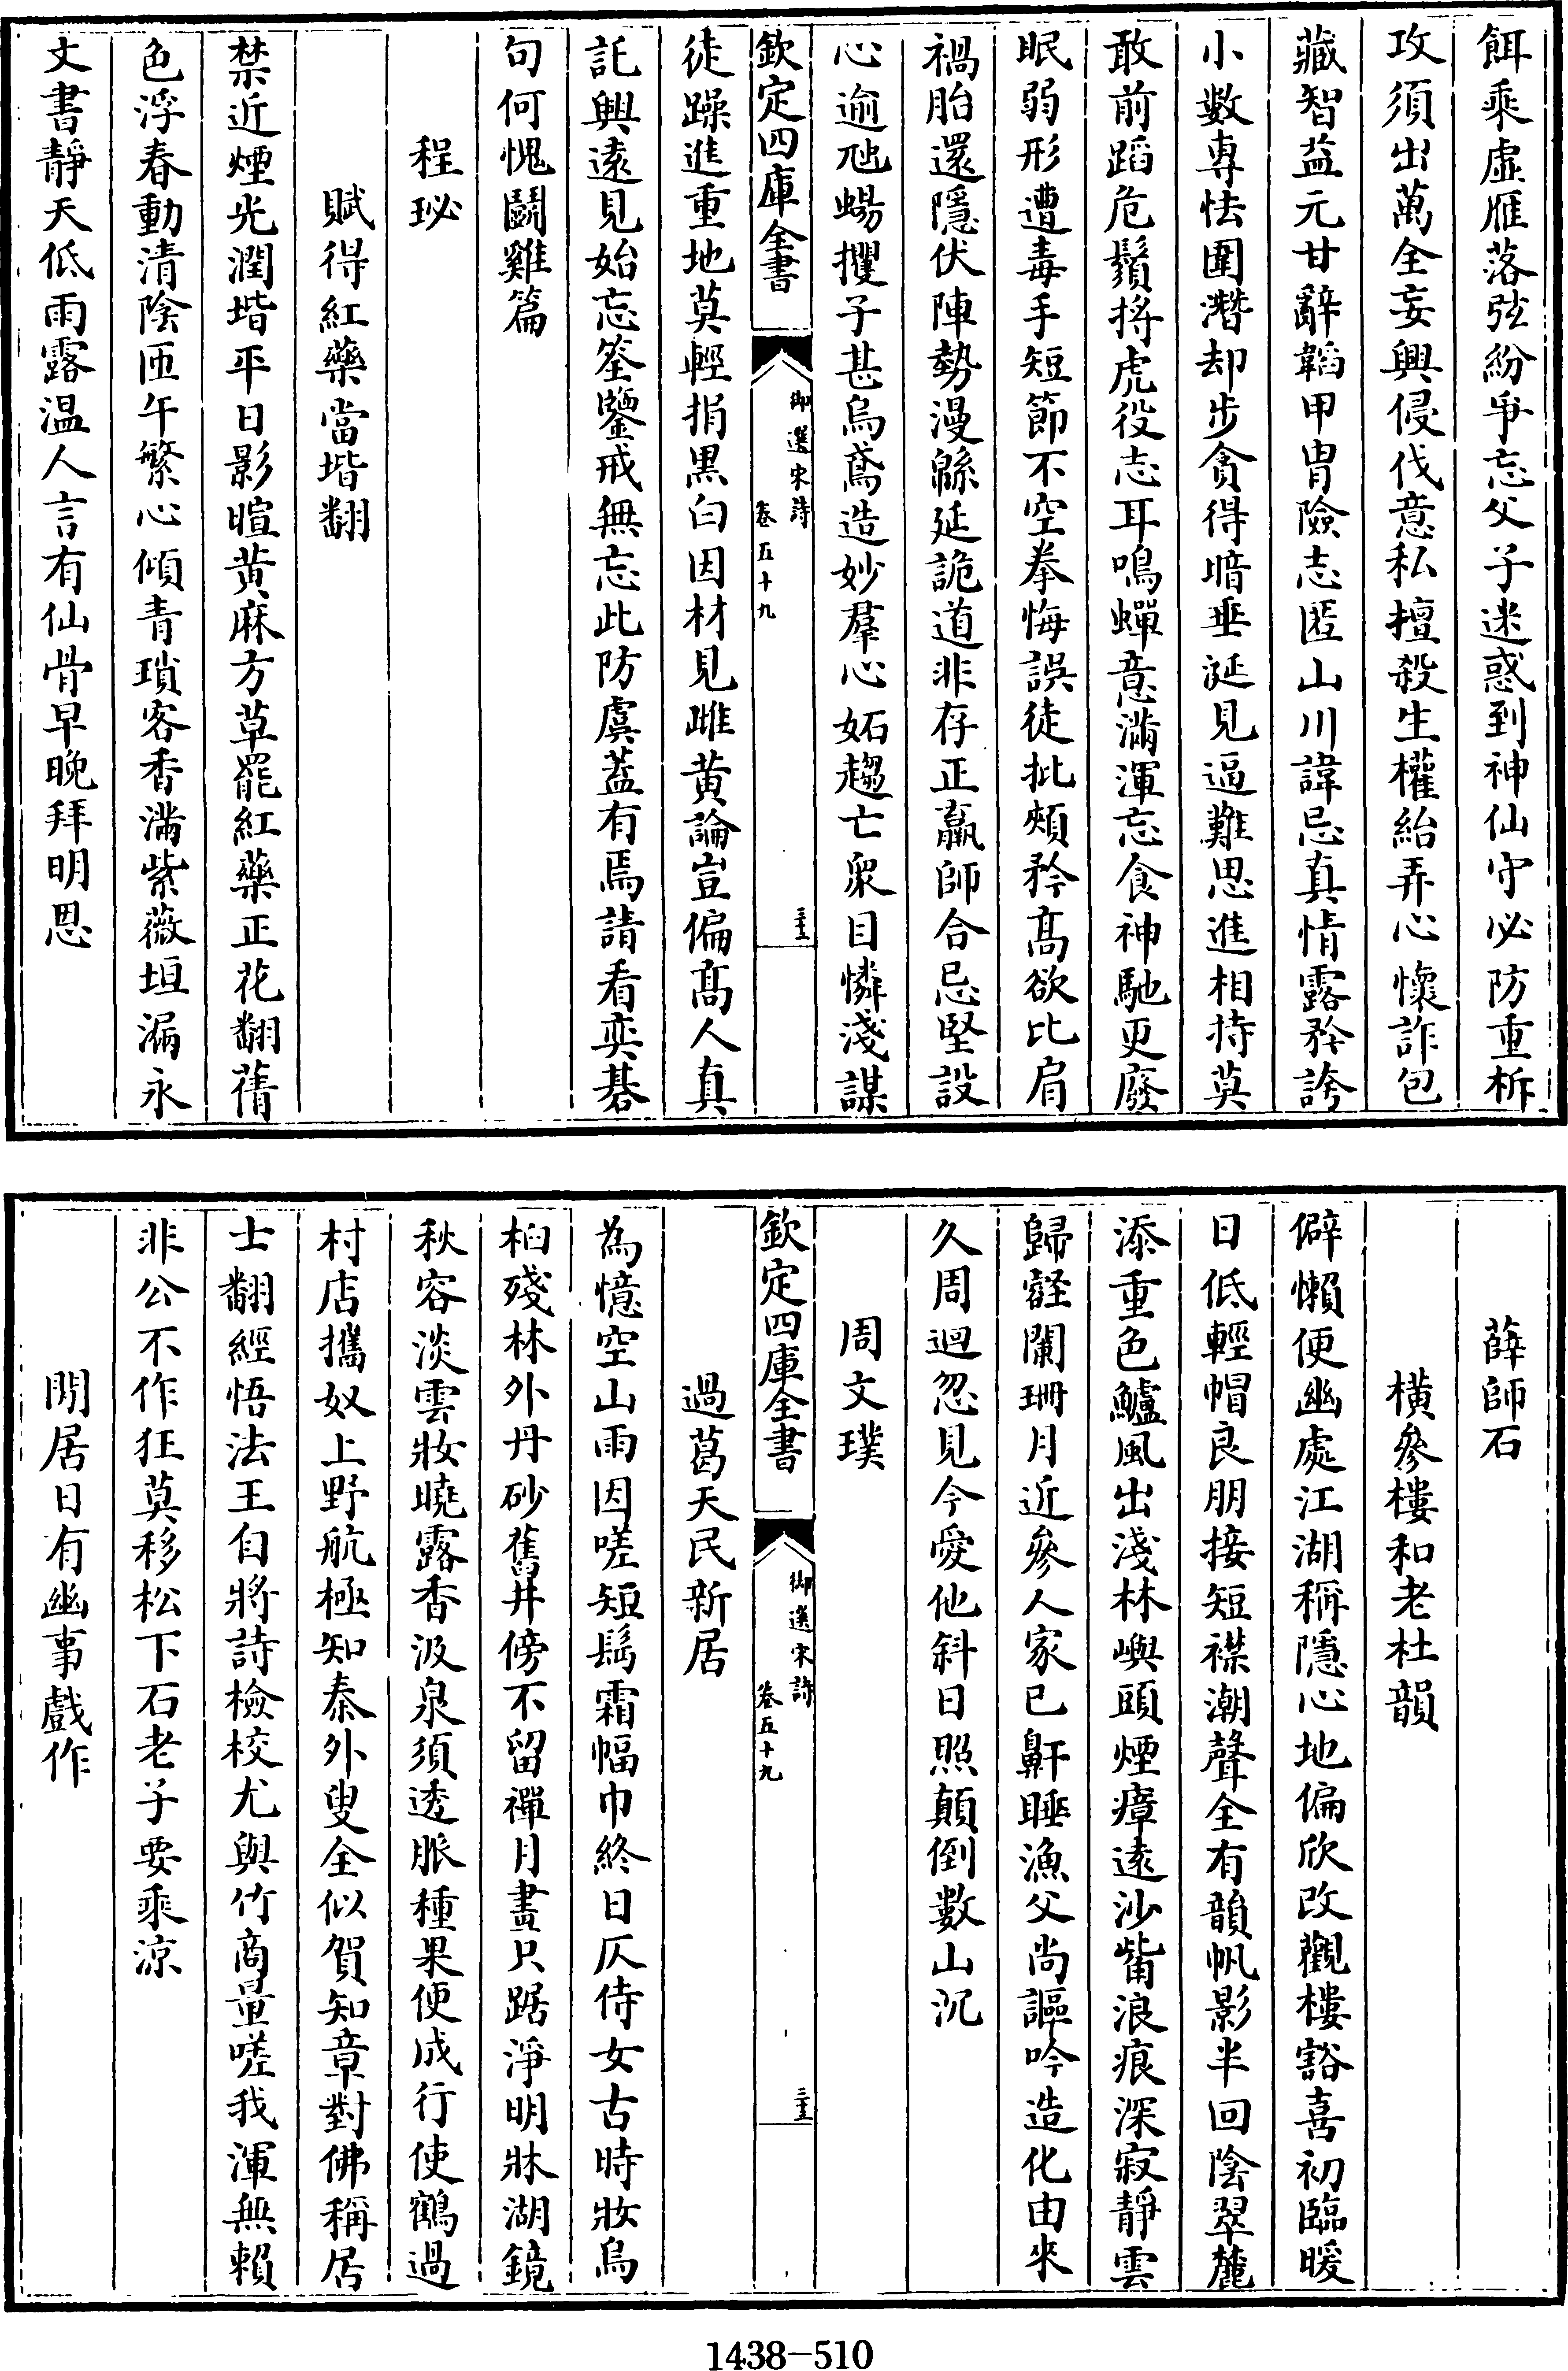 餌乘虛雁落弦紛爭忘父子迷惑到神仙守必防重柝
攻須出萬全妄興侵伐意私擅殺生權紿弄心懷詐包
藏智益元甘辭韜甲胄險志匿山川諱忌真情露矜誇
小數專怯圍潛却步貪得暗垂涎見逼難思進相持莫
敢前蹈危鬚捋虎役志耳鳴蟬意滿渾忘食神馳更廢
眠弱形遭毒手短節不空拳悔誤徒批頰矜高欲比肩
禍胎還隱伏陣勢漫緜延詭道非存正羸師合忌堅設
心逾虺蜴攫子甚烏鳶造妙羣心妬趨亡衆目憐淺謀
欽定四庫全書
御選宋詩
卷五十九
三十三
徒躁進重地莫輕捐黒白因材見雌黄論豈偏髙人真
託興遠見始忘筌鑒戒無忘此防虞葢有焉請看奕棊
句何愧鬭雞篇
程珌
賦得紅藥當堦翻
禁近煙光潤堦平日影暄黄麻方草罷紅藥正花翻蒨
色浮春動清陰匝午繁心傾青瑣客香滿紫薇垣漏永
文書靜天低雨露温人言有仙骨早晚拜明恩
薛師石
橫參樓和老杜韻
僻懶便幽處江湖稱隱心地偏欣改觀樓豁喜初臨暖
日低輕帽良朋接短襟潮聲全有韻帆影半回陰翠麓
添重色鱸風出淺林嶼頭煙瘴遠沙觜浪痕深寂靜雲
歸壑闌珊月近參人家已鼾睡漁父尚謳吟造化由來
久周迴忽見今愛他斜日照顛倒數山沉
周文璞
欽定四庫全書
御選宋詩
卷五十九
三十三
過葛天民新居
為憶空山雨因嗟短髩霜幅巾終日仄侍女古時妝烏
桕殘林外丹砂舊井傍不留禪月畫只踞淨明牀湖鏡
秋容淡雲妝曉露香汲泉須透脈種果便成行使鶴過
村店攜奴上野航極知秦外叟全似賀知章對佛稱居
士翻經悟法王自將詩檢校尤與竹商量嗟我渾無賴
非公不作狂莫移松下石老子要乘涼
閒居日有幽事戲作
1438-510